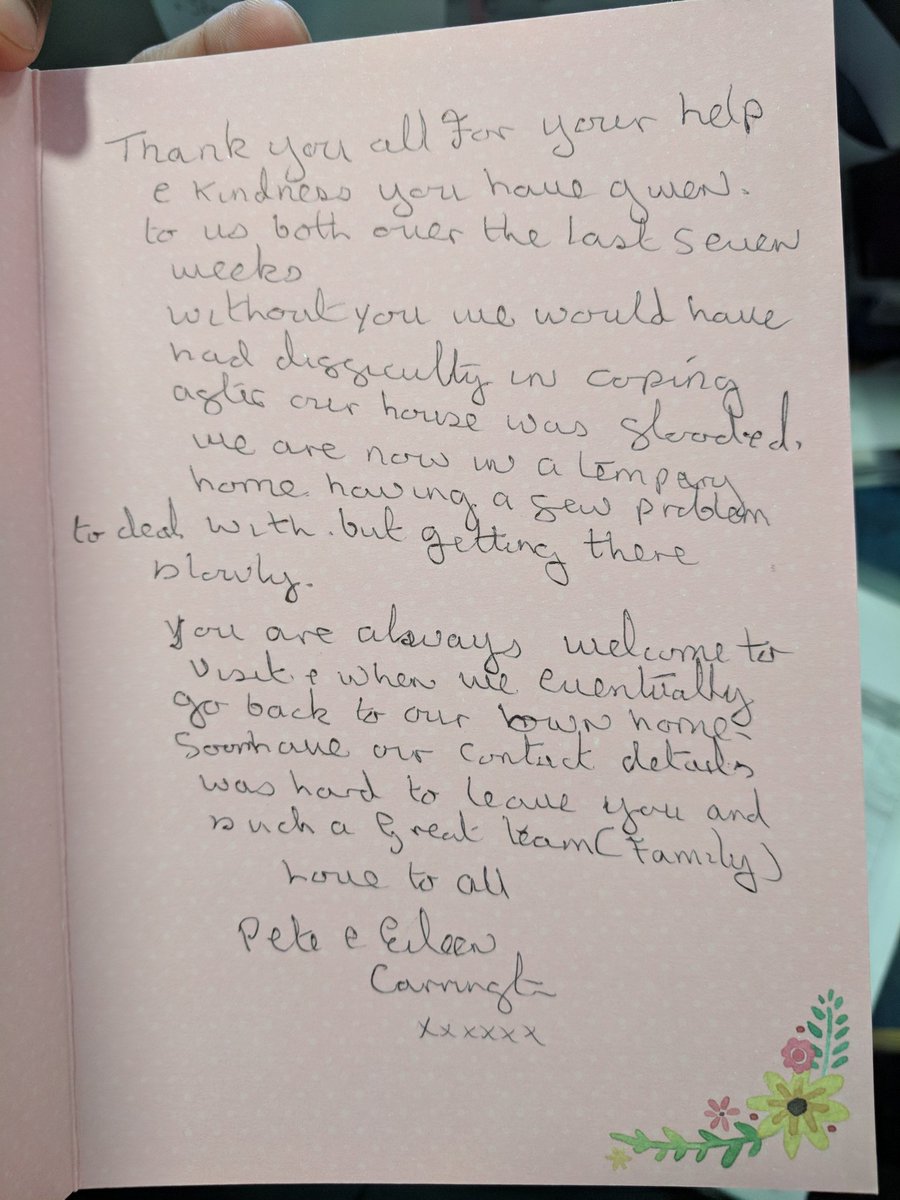 Thank you all For your help
e kindness you have given.
to us both over the last seven
weeks
without you we would have
had difficulty in coping
after our house was flooded.
we are now in a tempary
home having a few problem
to deal with. but getting there
slowly.
you are always welcome to
visit e when we eventually
go back to our own home -
Soon have our contact details
was hard to leave you and
such a Great team (Family)
Love to all
Pete e Eileen
Carrington
xxxxxx